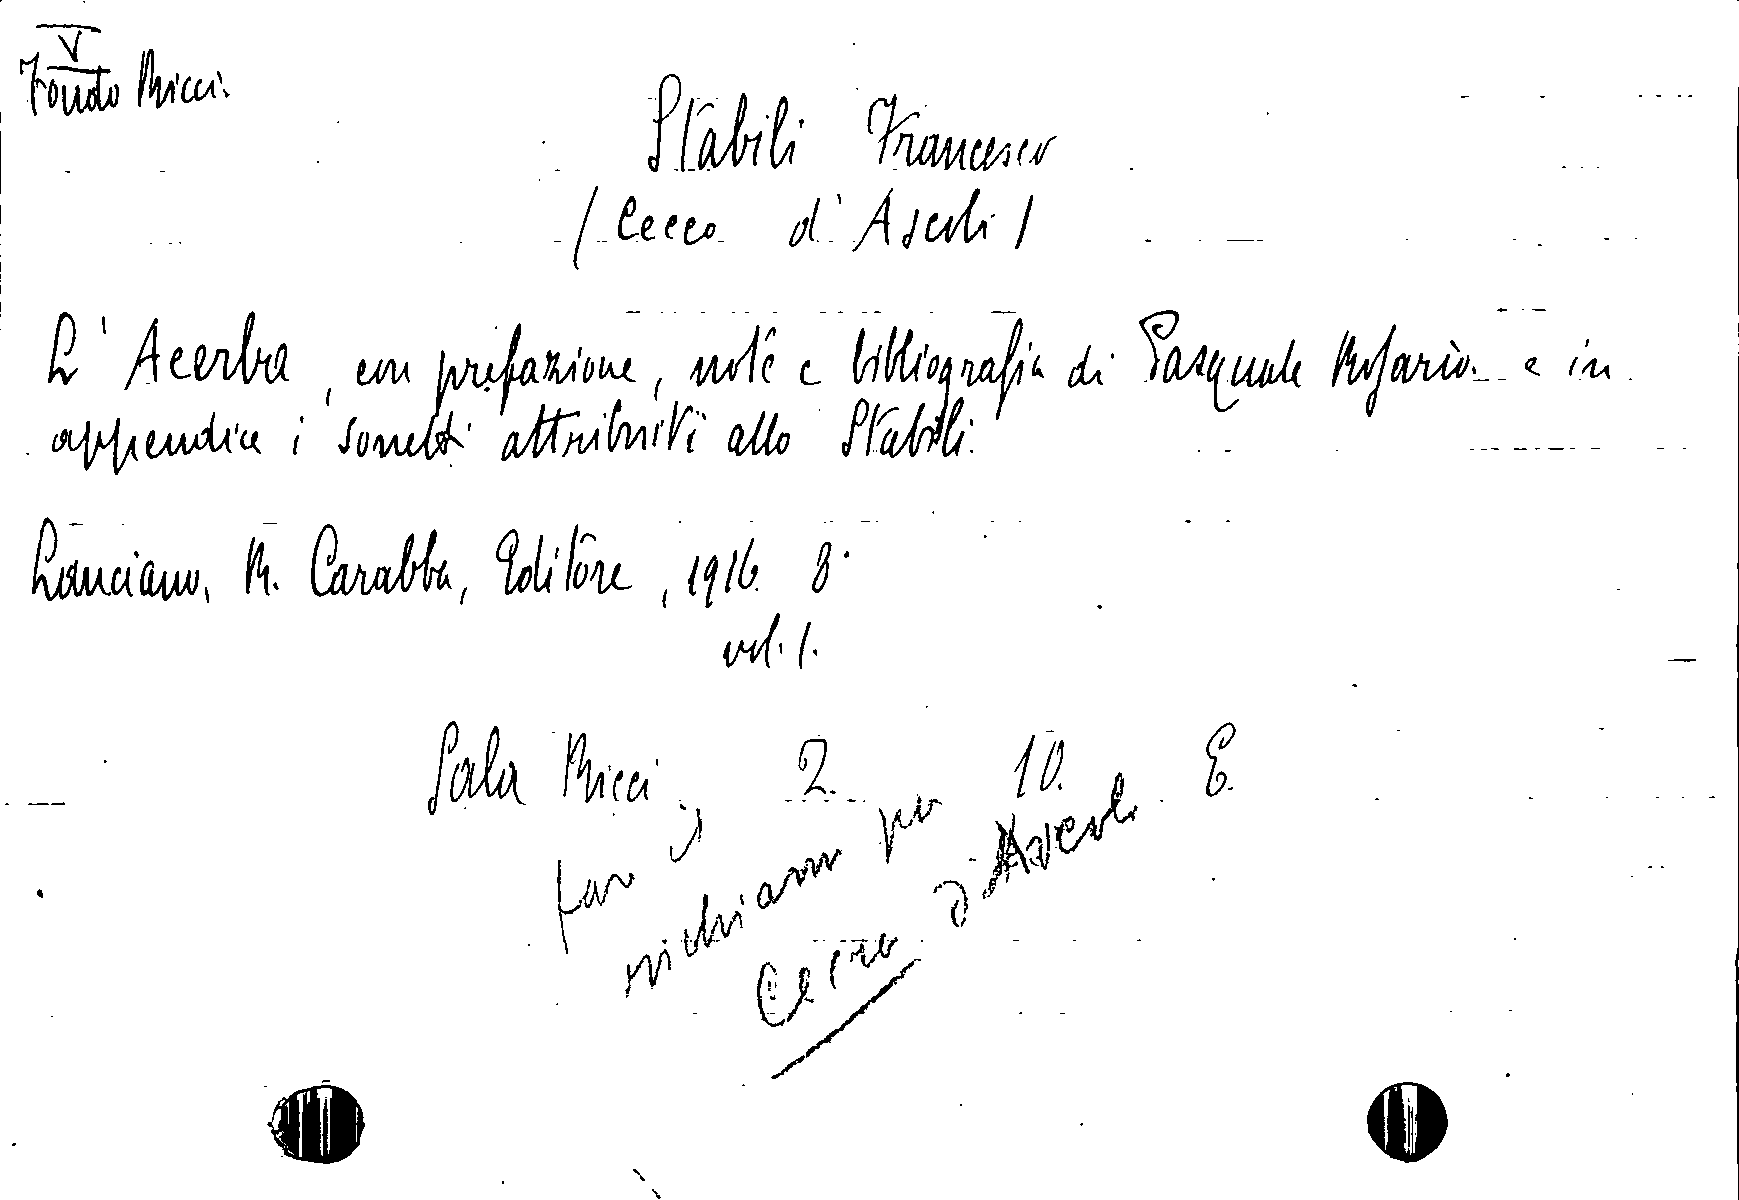 V
Fondo Ricci.
Stabili Francesco
/ Cecco d'Ascoli /
L'Acerba, con prefazione, note e bibliografia di Pasquale Rosario. e in
appendice i sonetti attribuiti allo Stabili.
Lanciano, R. Carabba, Editore, 1916. 8°
vol. 1.
Sala Ricci 2. 10. E.
fare
richiamo per
Cecco d'Ascoli